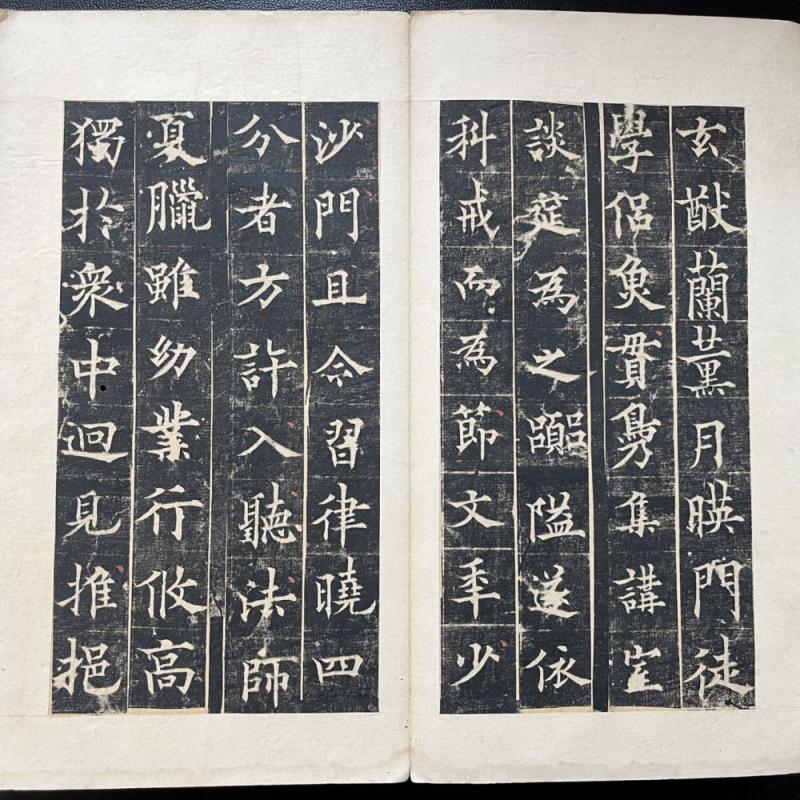 玄猷蘭薰月暎門徒
學侶魚貫鳧集講室
談筵為之囂隘遂依
科戒而為節文秊少
沙門且令習律曉四
分者方許入聽法師
夏臘雖幼業行攸高
獨於衆中迥見推挹